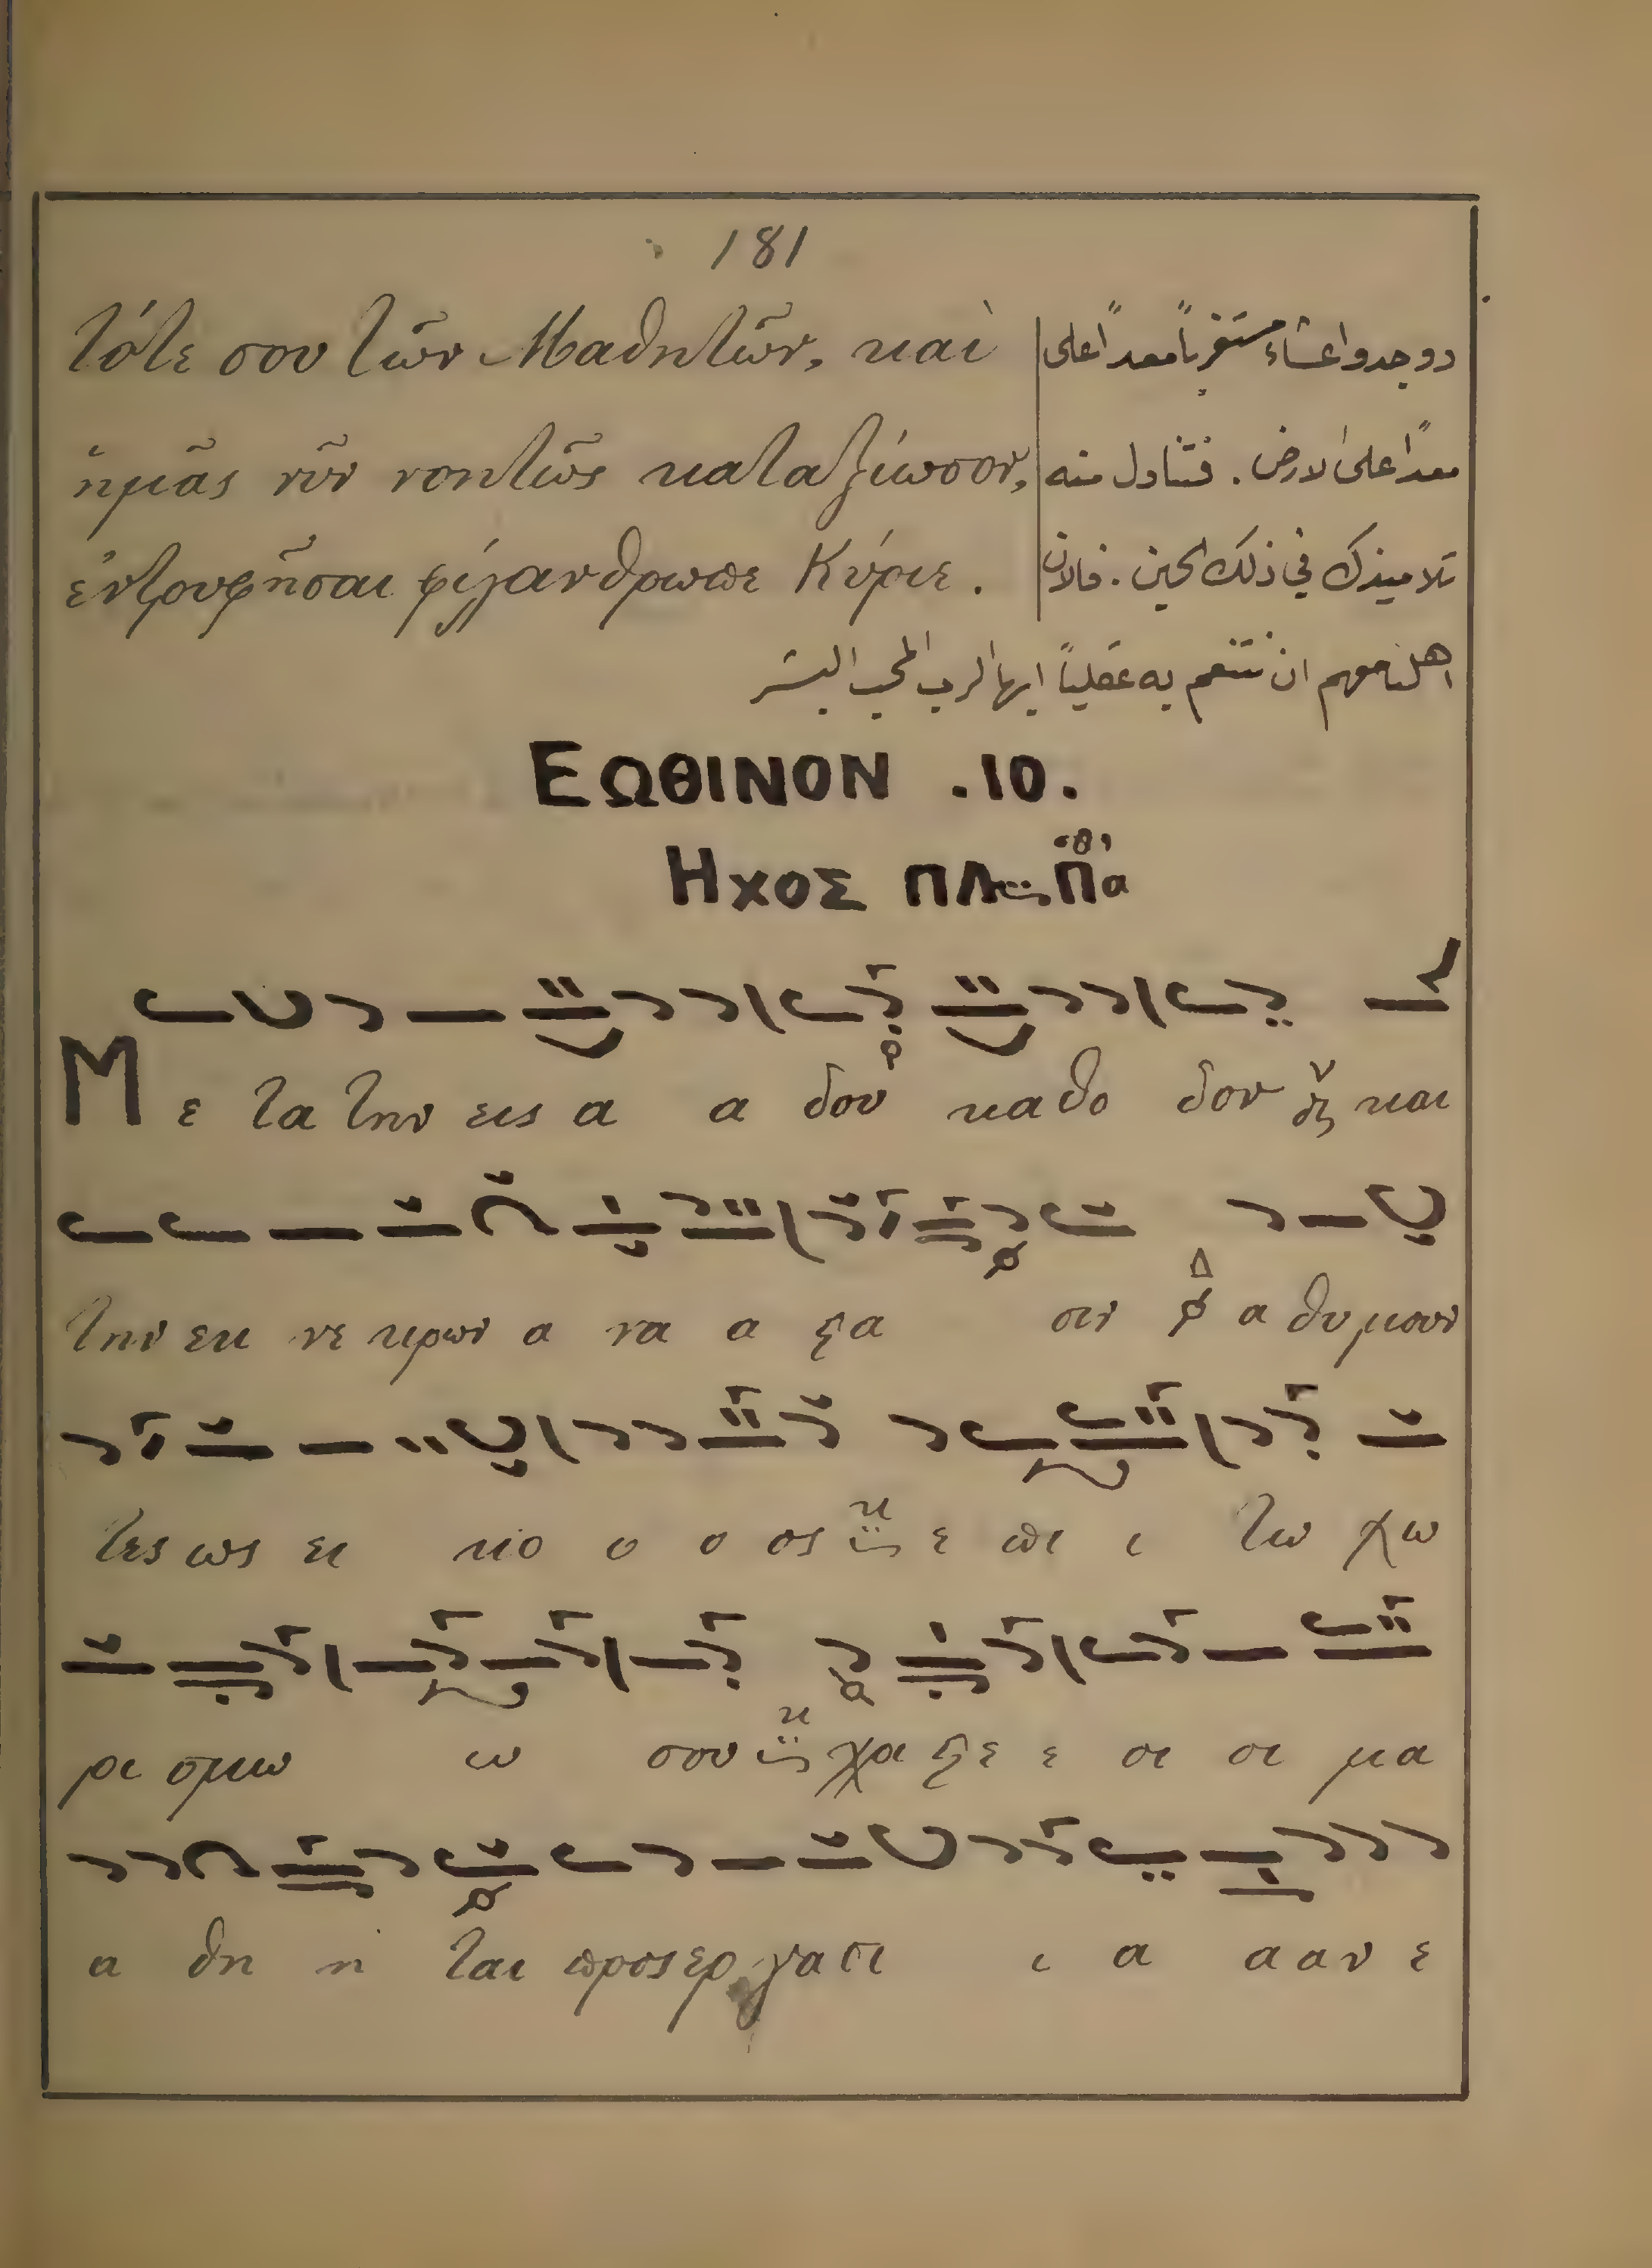 181
τότε σου τῶν Μαθητῶν, καὶ
ἡμᾶς νῦν νοητῶς καταξίωσον,
ἐντρυφῆσαι φιλάνθρωπε Κύριε.
دوجدوا عشاء مستغرباً معداً على
معداً على الارض. فتناول منه
تلاميذك في ذلك الحين. فالان
اهلنا معهم ان نتنعم به عقلياً ايها الرب المحب البشر
ΕΩΘΙΝΟΝ .10.
Ηχος πλ Πα
Με τα την εις α α δου καθο δον και
την εκ νε κρων α να α ςα σιν α θυ μουν
τες ως ει κο ο ο ος ε πι ι τω χω
ρι σμω ω σου χρι ςε ε οι οι μα
α θη η ται προς ερ γασι ι α α α ν ε